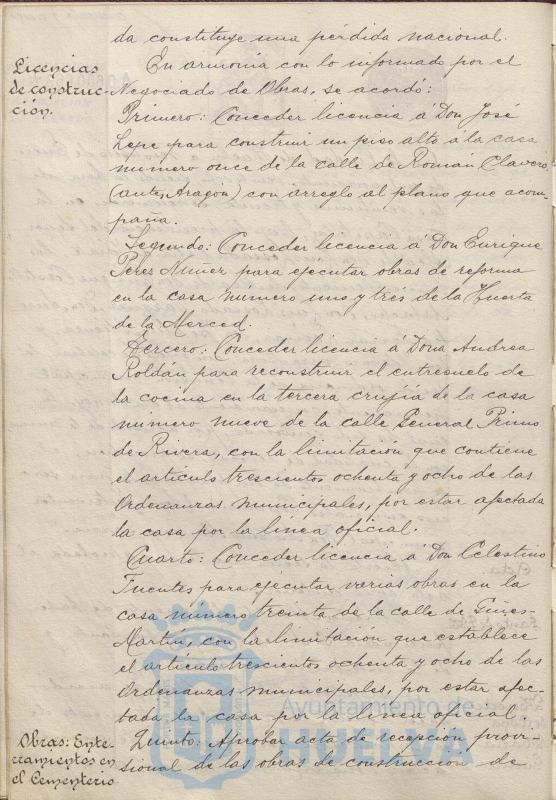 da constituye una pérdida nacional.
Licencias
de construc-
ción.
En armonía con lo informado por el
Negociado de Obras, se acordó:
Primero: Conceder licencia á Don José
Lepe para construir un piso alto á la casa
número once de la calle de Román Clavero
(antes, Aragón) con arreglo al plano que acom-
paña.
Segundo: Conceder licencia á Don Enrique
Pérez Nuñez para ejecutar obras de reforma
en la casa número uno y tres de la Huerta
de la Merced.
Tercero: Conceder licencia á Doña Andrea
Roldán para reconstruir el entresuelo de
la cocina en la tercera crujía de la casa
número nueve de la calle General Primo
de Rivera, con la limitación que contiene
el artículo trescientos ochenta y ocho de las
Ordenanzas municipales, por estar afectada
la casa por la línea oficial.
Cuarto: Conceder licencia á Don Celestino
Fuentes para ejecutar varias obras en la
casa número treinta de la calle de
Martín, con la limitación que establece
el artículo trescientos ochenta y ocho de las
Ordenanzas municipales, por estar afec-
tada la casa por la línea oficial
Obras: Ente-
rramientos en
el Cementerio
Quinto: Aprobar acta de recepción provi-
sional de las obras de construcción de
Ayuntamiento de
HUELVA